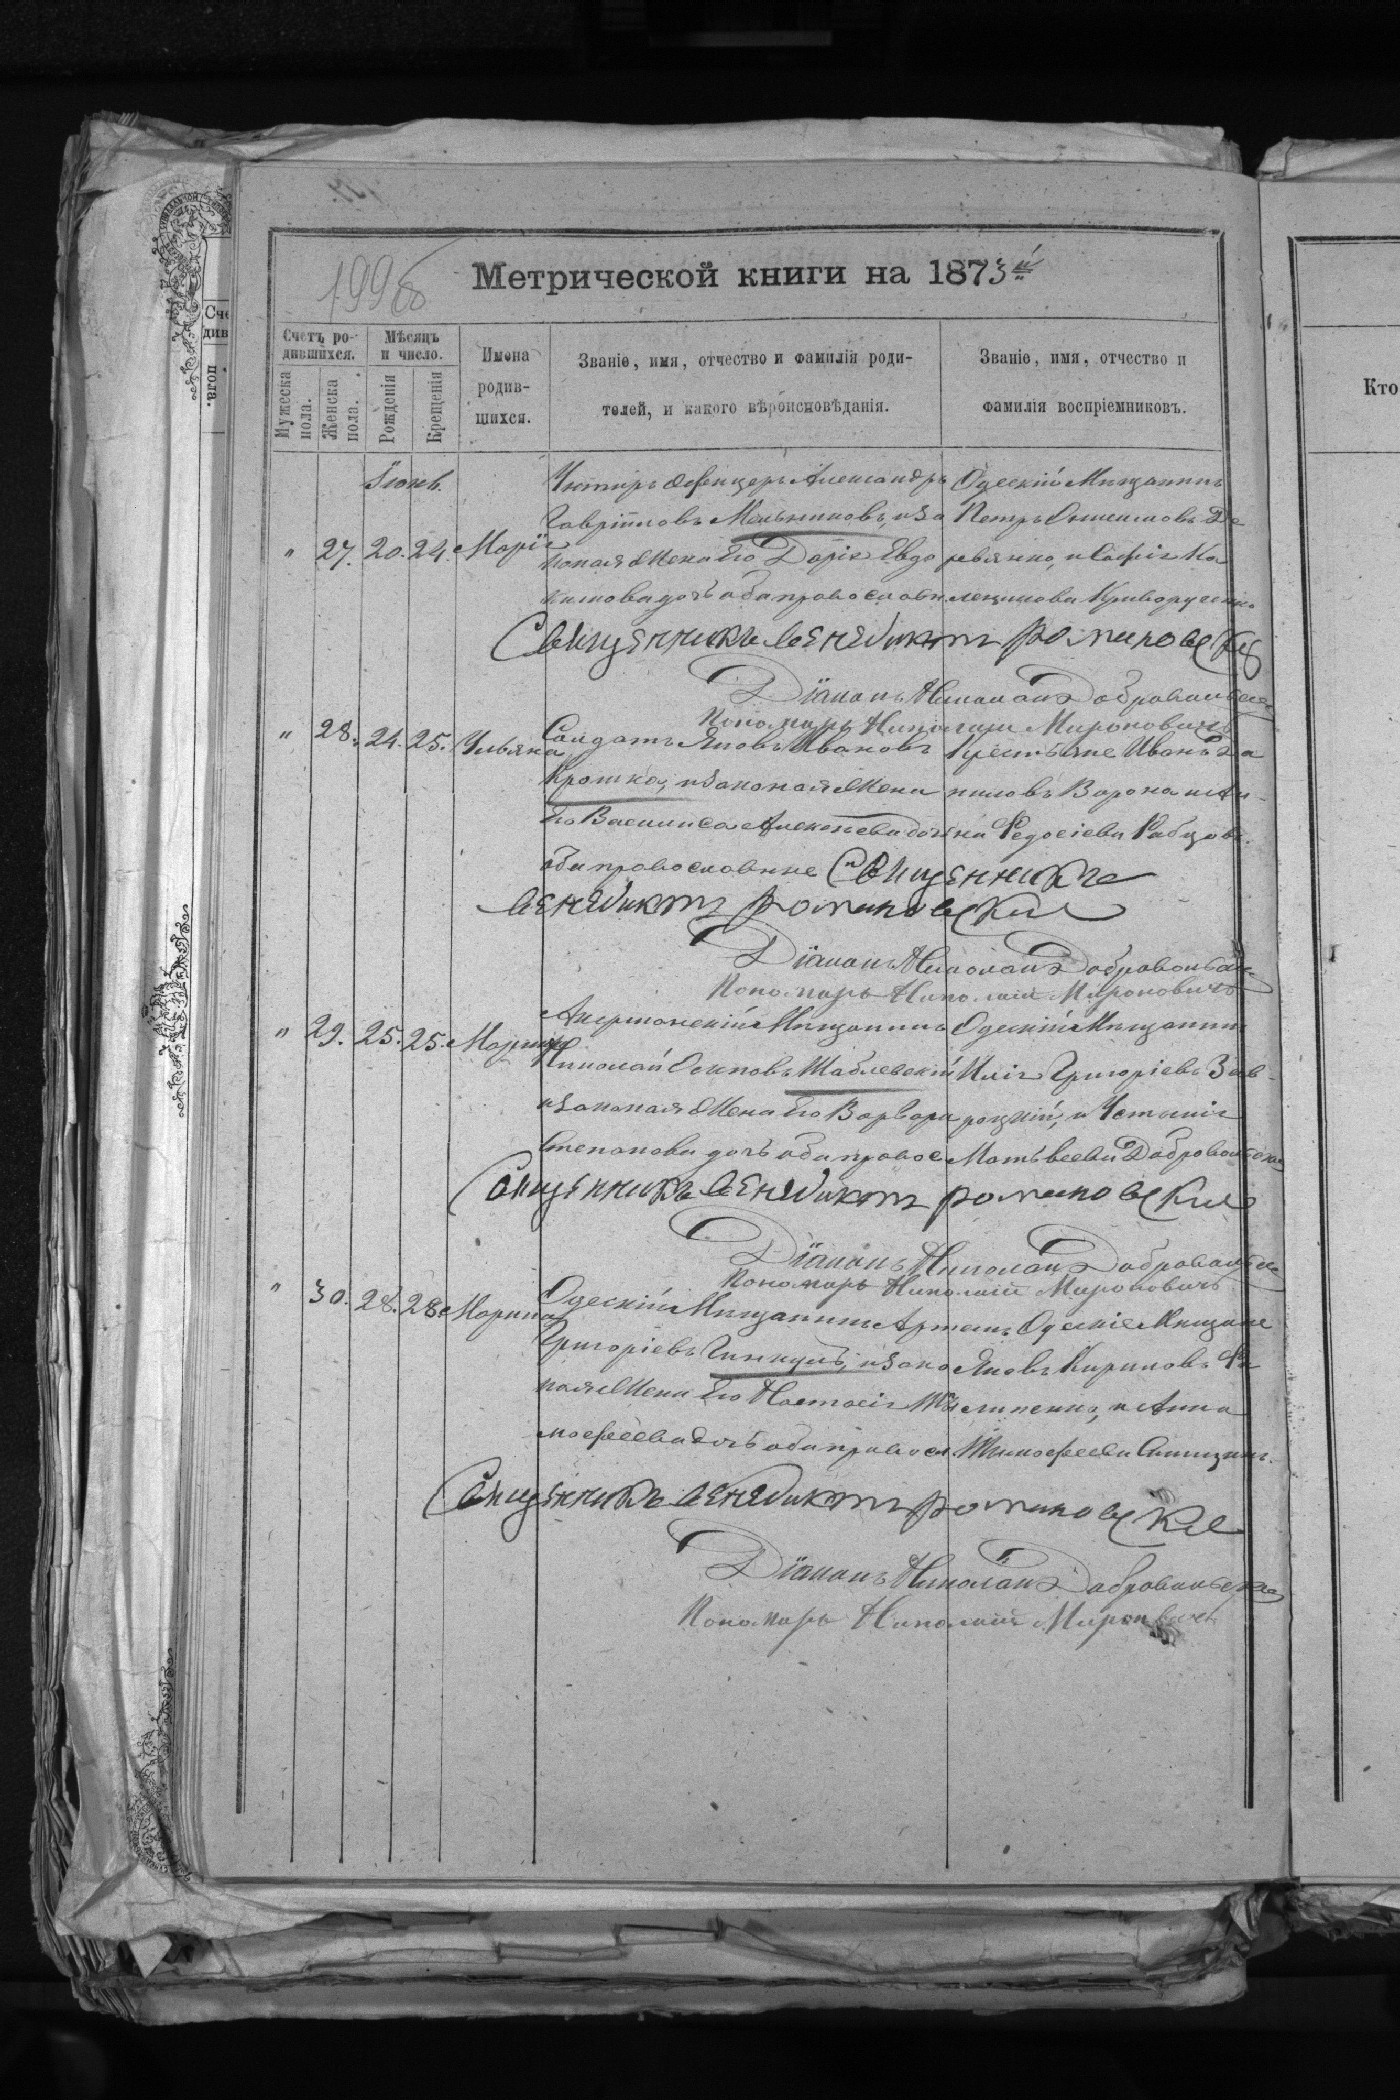 199 об
Метрической книги на 1873й
Счетъ родившихся.
Мѣсяцъ и число.
Имена родившихся.
Званіе, имя, отчество и фамилія родителей, и какого вѣроисповѣданія.
Званіе, имя, отчество и фамилія воспріемниковъ.
Мужеска пола.
Женска пола.
Рожденія
Крещенія
Кто
Іюнь.
" 27. 20. 24. Марія
Унтиръ Офицеръ Александръ
Гавріиловъ Мельниковъ, и за
коная Жена Его Дарія Евдо
кимова дочь оба православн
Одескій Мищанинъ
Петръ Онисимовъ Де
ревянко, и Софія Ка
Криворученко
Священникъ Венедиктъ Романовскій
Діаконъ Николай Добровольскій
Пономарь Николай Мироновичъ
" 28. 24. 25. Ульяна
Солдатъ Яковъ Ивановъ
Крошка, и законая Жена
Его Василиса Алексѣева дочь
оба православные
Крестьяне Иванъ Да
ниловъ Ворона и Ан
на Федосіева Рабцова.
Священникъ
Венедиктъ Романовскій
Діаконъ Николай Добровольскій
Пономарь Николай Мироновичъ
" 29. 25. 25. Марина
Акерманскій Мищанинъ
Николай Осиповъ Шаблевскій
и законая Жена Его Варвара
Степанова дочь оба правос
Одескій Мищанинъ
Илія Григоріевъ Зав
роцкій, и Устинія
Матвѣева Добровольская
Священникъ Венедиктъ Романовскій
Діаконъ Николай Добровольскій
Пономарь Николай Мироновичъ
" 30. 28. 28. Марина
Одескій Мищанинъ Артемъ
Григоріевъ Гинкулъ, и зако
ная Жена Его Настасія Ти
мофеева дочь оба правосл
Одескіе Мищане
Яковъ Кириловъ
и Анна
Тимофеева
Священникъ Венедиктъ Романовскій
Діаконъ Николай Добровольскій
Пономарь Николай Мироновичъ